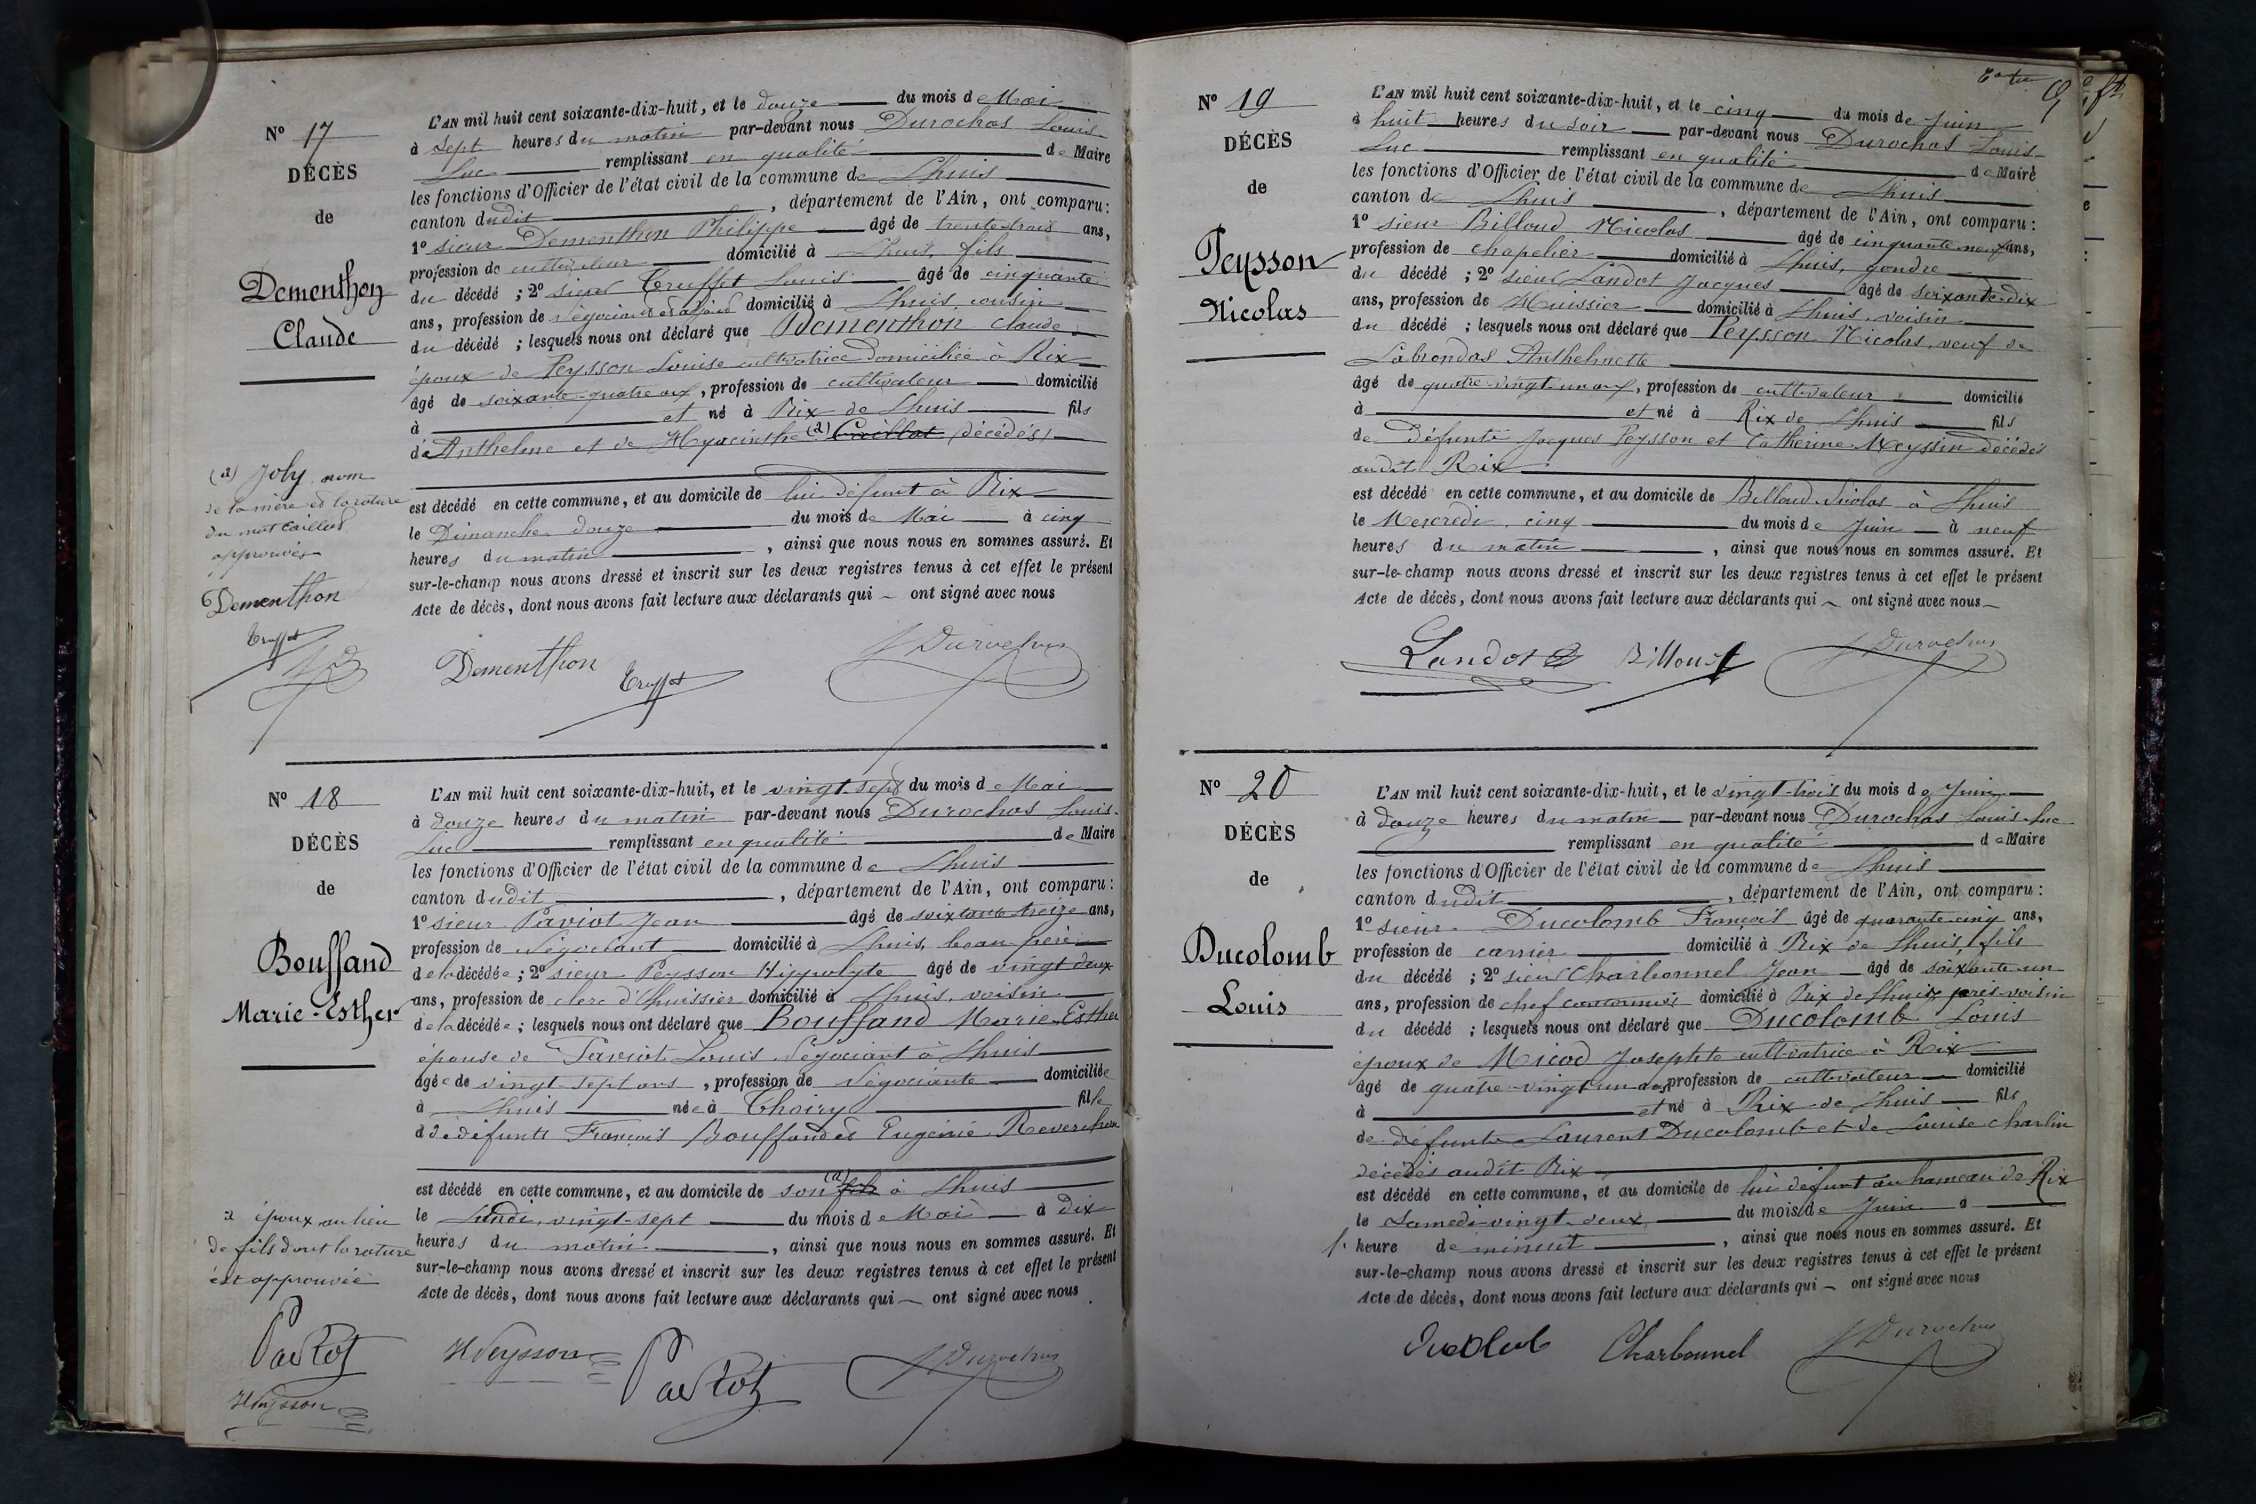 Nº 17
DÉCÈS
de
Dementhon
Claude
L'AN mil huit cent soixante-dix-huit, et le douze du mois de Mai
à sept heures du matin par-devant nous Durochas Louis
Luc remplissant en qualité de Maire
les fonctions d'Officier de l'état civil de la commune de Lhuis
canton dudit , département de l'Ain, ont comparu :
1º sieur Dementhon Philippe âgé de trente-trois ans,
profession de cultivateur domicilié à Lhuis, fils
du décédé ; 2º sieur Truffet Louis âgé de cinquante
ans, profession de négociant domicilié à Lhuis, cousin
du décédé ; lesquels nous ont déclaré que Dementhon Claude
époux de Peysson Louise cultivatrice domiciliée à Rix
âgé de soixante-quatre ans, profession de cultivateur domicilié
à et né à Rix de Lhuis fils
de Anthelme et de Hyacinthe (a) Caillot (décédés)
est décédé en cette commune, et au domicile de lui défunt à Rix
le Dimanche douze du mois de Mai à cinq
heures du matin , ainsi que nous nous en sommes assuré. Et
sur-le-champ nous avons dressé et inscrit sur les deux registres tenus à cet effet le présent
Acte de décès, dont nous avons fait lecture aux déclarants qui ont signé avec nous
(a) Joly nom
de la mère et la rature
du mot Caillot
approuvés
Dementhon
Truffet
Dementhon Truffet Durochas
Nº 18
DÉCÈS
de
Bouffand
Marie-Esther
L'AN mil huit cent soixante-dix-huit, et le vingt-sept du mois de Mai
à douze heures du matin par-devant nous Durochas Louis-
Luc remplissant en qualité de Maire
les fonctions d'Officier de l'état civil de la commune de Lhuis
canton dudit , département de l'Ain, ont comparu :
1º sieur Paviot Jean âgé de soixante treize ans,
profession de Négociant domicilié à Lhuis, beau-père
de la décédée ; 2º sieur Peysson Hippolyte âgé de vingt deux
ans, profession de clerc d'huissier domicilié à Lhuis, voisin
de la décédée ; lesquels nous ont déclaré que Bouffand Marie-Esther
épouse de Paviot Louis Négociant à Lhuis
âgée de vingt-sept ans, profession de Négociante domiciliée
à Lhuis née à Thoiry fille
de défunts François Bouffand et Eugénie Reverchon
est décédé en cette commune, et au domicile de son (a) fils à Lhuis
le Lundi, vingt-sept du mois de Mai à dix
heures du matin , ainsi que nous nous en sommes assuré. Et
sur-le-champ nous avons dressé et inscrit sur les deux registres tenus à cet effet le présent
Acte de décès, dont nous avons fait lecture aux déclarants qui ont signé avec nous
a époux au lieu
de fils dont la rature
est approuvée
Paviot
H Peysson
H Peysson Paviot Durochas
Nº 19
DÉCÈS
de
Peysson
Nicolas
L'AN mil huit cent soixante-dix-huit, et le cinq du mois de Juin
à huit heures du soir par-devant nous Durochas Louis-
Luc remplissant en qualité de Maire
les fonctions d'Officier de l'état civil de la commune de Lhuis
canton de Lhuis , département de l'Ain, ont comparu :
1º sieur Billoud Nicolas âgé de cinquante neuf ans,
profession de chapelier domicilié à Lhuis, gendre
du décédé ; 2º sieur Landot Jacques âgé de soixante-dix
ans, profession de Huissier domicilié à Lhuis, voisin
du décédé ; lesquels nous ont déclaré que Peysson Nicolas, veuf de
Labrondas Anthelmette
âgé de quatre-vingt-un ans, profession de cultivateur domicilié
à et né à Rix de Lhuis fils
de Défunts Jacques Peysson et Catherine Meyssin décédés
audit Rix
est décédé en cette commune, et au domicile de Billoud Nicolas à Lhuis
le Mercredi, cinq du mois de Juin à neuf
heures du matin , ainsi que nous nous en sommes assuré. Et
sur-le-champ nous avons dressé et inscrit sur les deux registres tenus à cet effet le présent
Acte de décès, dont nous avons fait lecture aux déclarants qui ont signé avec nous
Landot Billoud Durochas
Nº 20
DÉCÈS
de
Ducolomb
Louis
L'AN mil huit cent soixante-dix-huit, et le vingt-trois du mois de Juin
à douze heures du matin par-devant nous Durochas Louis-Luc
remplissant en qualité de Maire
les fonctions d'Officier de l'état civil de la commune de Lhuis
canton dudit , département de l'Ain, ont comparu :
1º sieur Ducolomb François âgé de quarante-cinq ans,
profession de carrier domicilié à Rix de Lhuis, fils
du décédé ; 2º sieur Charbonnel Jean âgé de soixante-un
ans, profession de chef cantonnier domicilié à Rix de Lhuis, voisin
du décédé ; lesquels nous ont déclaré que Ducolomb Louis
époux de Micod Josephte cultivatrice à Rix
âgé de quatre-vingt-un ans profession de cultivateur domicilié
à et né à Rix de Lhuis fils
de défunts Laurent Ducolomb et de Louise Charlin
décédés audit Rix
est décédé en cette commune, et au domicile de lui défunt au hameau de Rix
le Samedi-vingt-deux du mois de Juin à
heure de minuit , ainsi que nous nous en sommes assuré. Et
sur-le-champ nous avons dressé et inscrit sur les deux registres tenus à cet effet le présent
Acte de décès, dont nous avons fait lecture aux déclarants qui ont signé avec nous
Ducolomb Charbonnel Durochas